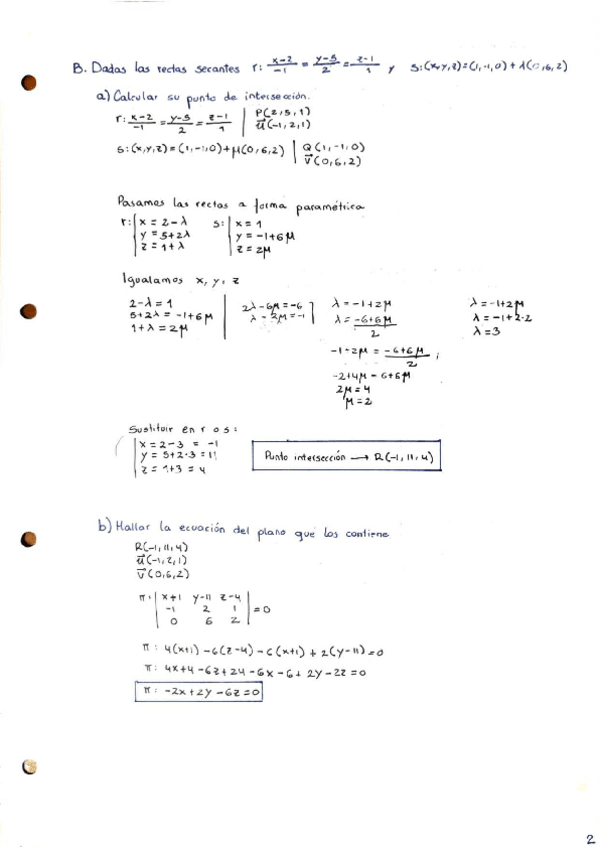 B. Dadas las rectas secantes r: x-2/-1 = y-5/2 = z-1/1 y s:(x,y,z)=(1,-1,0)+λ(0,6,2)
a) Calcular su punto de intersección.
r: x-2/-1 = y-5/2 = z-1/1 | P(2,5,1)
u⃗(-1,2,1)
s:(x,y,z)=(1,-1,0)+μ(0,6,2) | Q(1,-1,0)
v⃗(0,6,2)
Pasamos las rectas a forma paramétrica
r: | x = 2-λ s: | x = 1
y = 5+2λ y = -1+6μ
z = 1+λ z = 2μ
Igualamos x, y, z
2-λ = 1
5+2λ = -1+6μ
1+λ = 2μ
2λ-6μ=-6
λ-2μ=-1
λ = -1+2μ
λ = -6+6μ/2
-1+2μ = -6+6μ/2 ;
-2+4μ = 6+6μ
2μ = 4
μ = 2
λ = -1+2μ
λ = -1+2·2
λ = 3
Sustituir en r o s:
x = 2-3 = -1
y = 5+2·3 = 11
z = 1+3 = 4
Punto intersección → R(-1,11,4)
b) Hallar la ecuación del plano que los contiene
R(-1,11,4)
u⃗(-1,2,1)
v⃗(0,6,2)
π: | x+1 y-11 z-4 |
-1 2 1 = 0
0 6 2
π: 4(x+1)-6(z-4)-6(x+1)+2(y-11)=0
π: 4x+4-6z+24-6x-6+2y-22=0
π: -2x+2y-6z=0
2